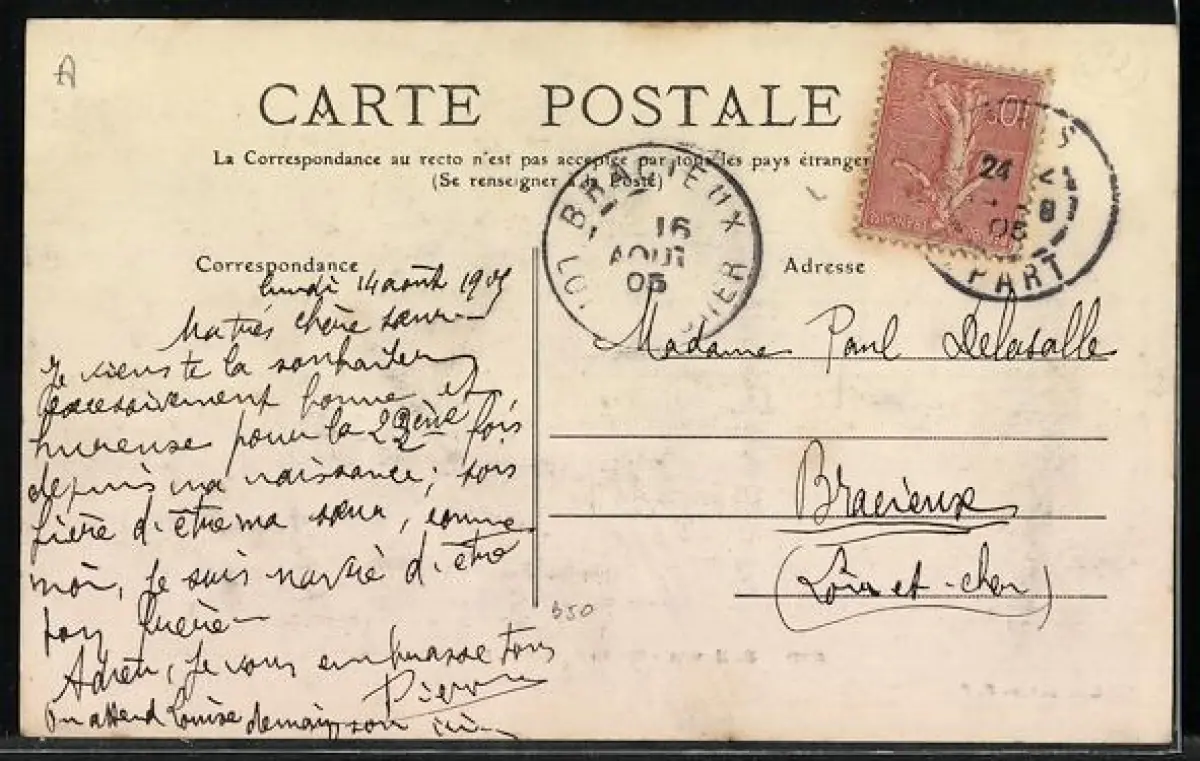 A
CARTE POSTALE
La Correspondance au recto n'est pas acceptée par tous les pays étranger
(Se renseigner à la Poste)
Correspondance
Adresse
101 BRACIEUX CHER
16
AOUT
05
10
24
8
05
PART
lundi 14 août 1905
Ma très chère sœur
Je viens te la souhaiter
excessivement bonne et
hureuse pour la 22ème fois
depuis ma naissance; sois
fière d'être ma sœur, comme
moi, je suis d'être
ton
Adieu, je vous embrasse tous
Pierre
On attend Louise demain soir
Madame Paul Delasalle
Bracieux
(Loir-et-cher)
350